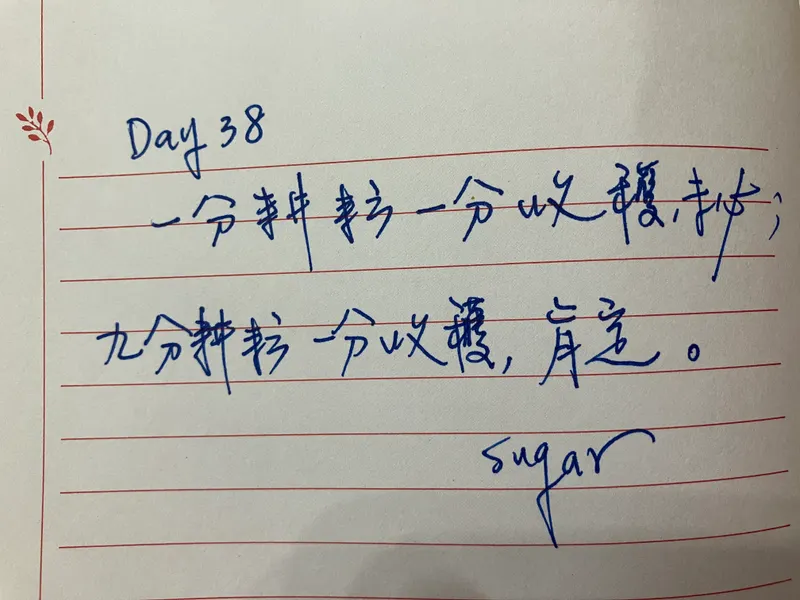 Day 38
一分耕耘一分收穫,抄;
九分耕耘一分收穫,肯定。
sugar